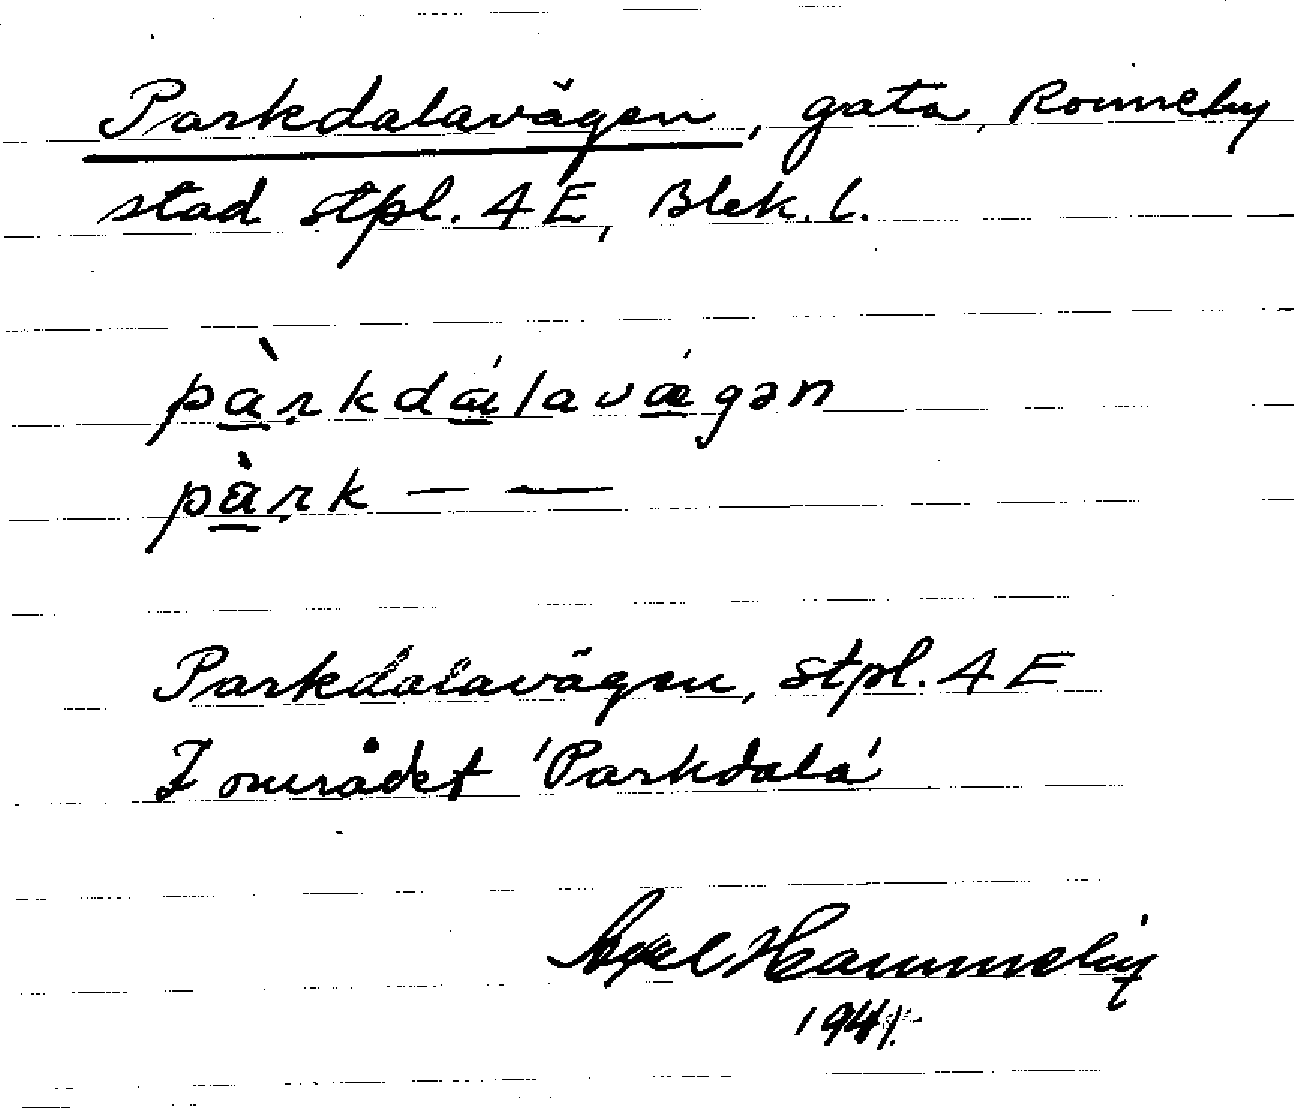 Parkdalavägen, gata, Ronneby
stad stpl. 4 E, Blek. l.
pàrkdálavǽgən
pàrk — —
Parkdalavägen, stpl. 4 E
I området 'Parkdala'
Axel Hammeby
1941.